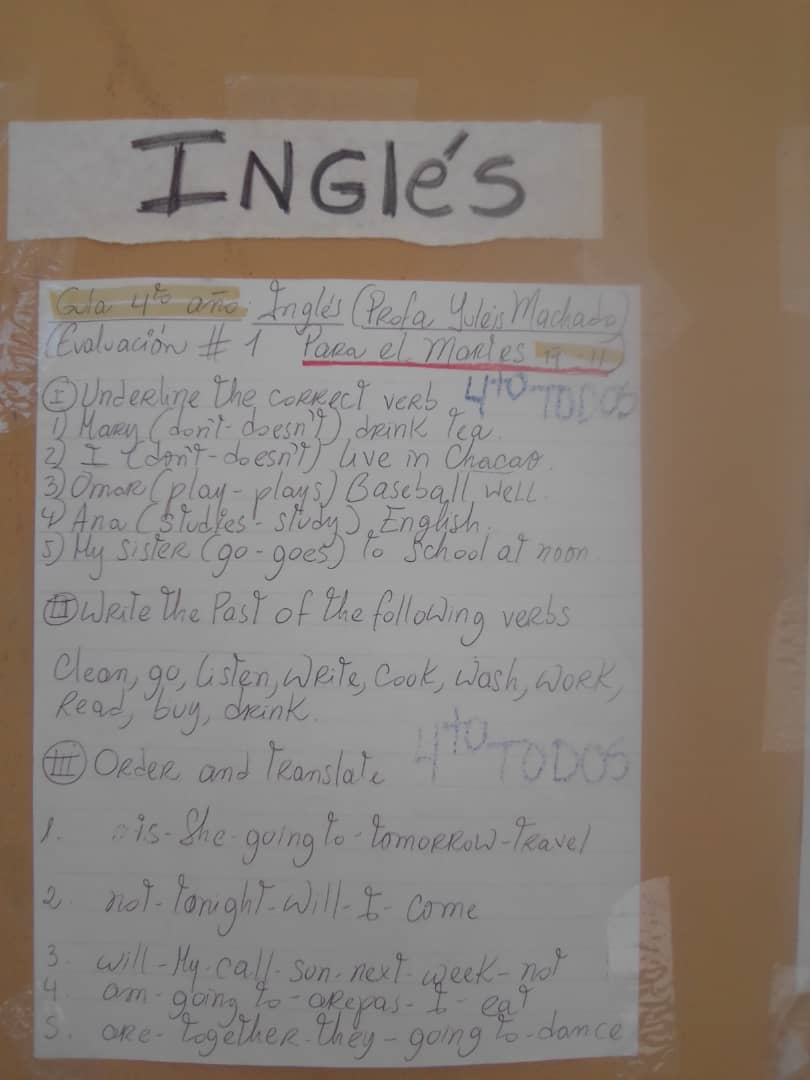 INGlés
Guía 4to año. Inglés (Profa Yuleis Machado)
Evaluación # 1 Para el Martes 19-11
I Underline the correct verb 4to TODOS
1) Mary (don't-doesn't) drink tea.
2) I (don't-doesn't) live in Chacao.
3) Omar (play-plays) Baseball well.
4) Ana (studies-study) English.
5) My sister (go-goes) to school at noon.
II Write the Past of the following verbs
Clean, go, listen, write, cook, wash, work,
Read, buy, drink.
4to TODOS
III Order and translate
1. is-She-going to-tomorrow-travel
2. not-tonight-will-I-come
3. will-My-call-son-next week-not
4. am-going to-arepas-I-eat
5. are-together-they-going to-dance